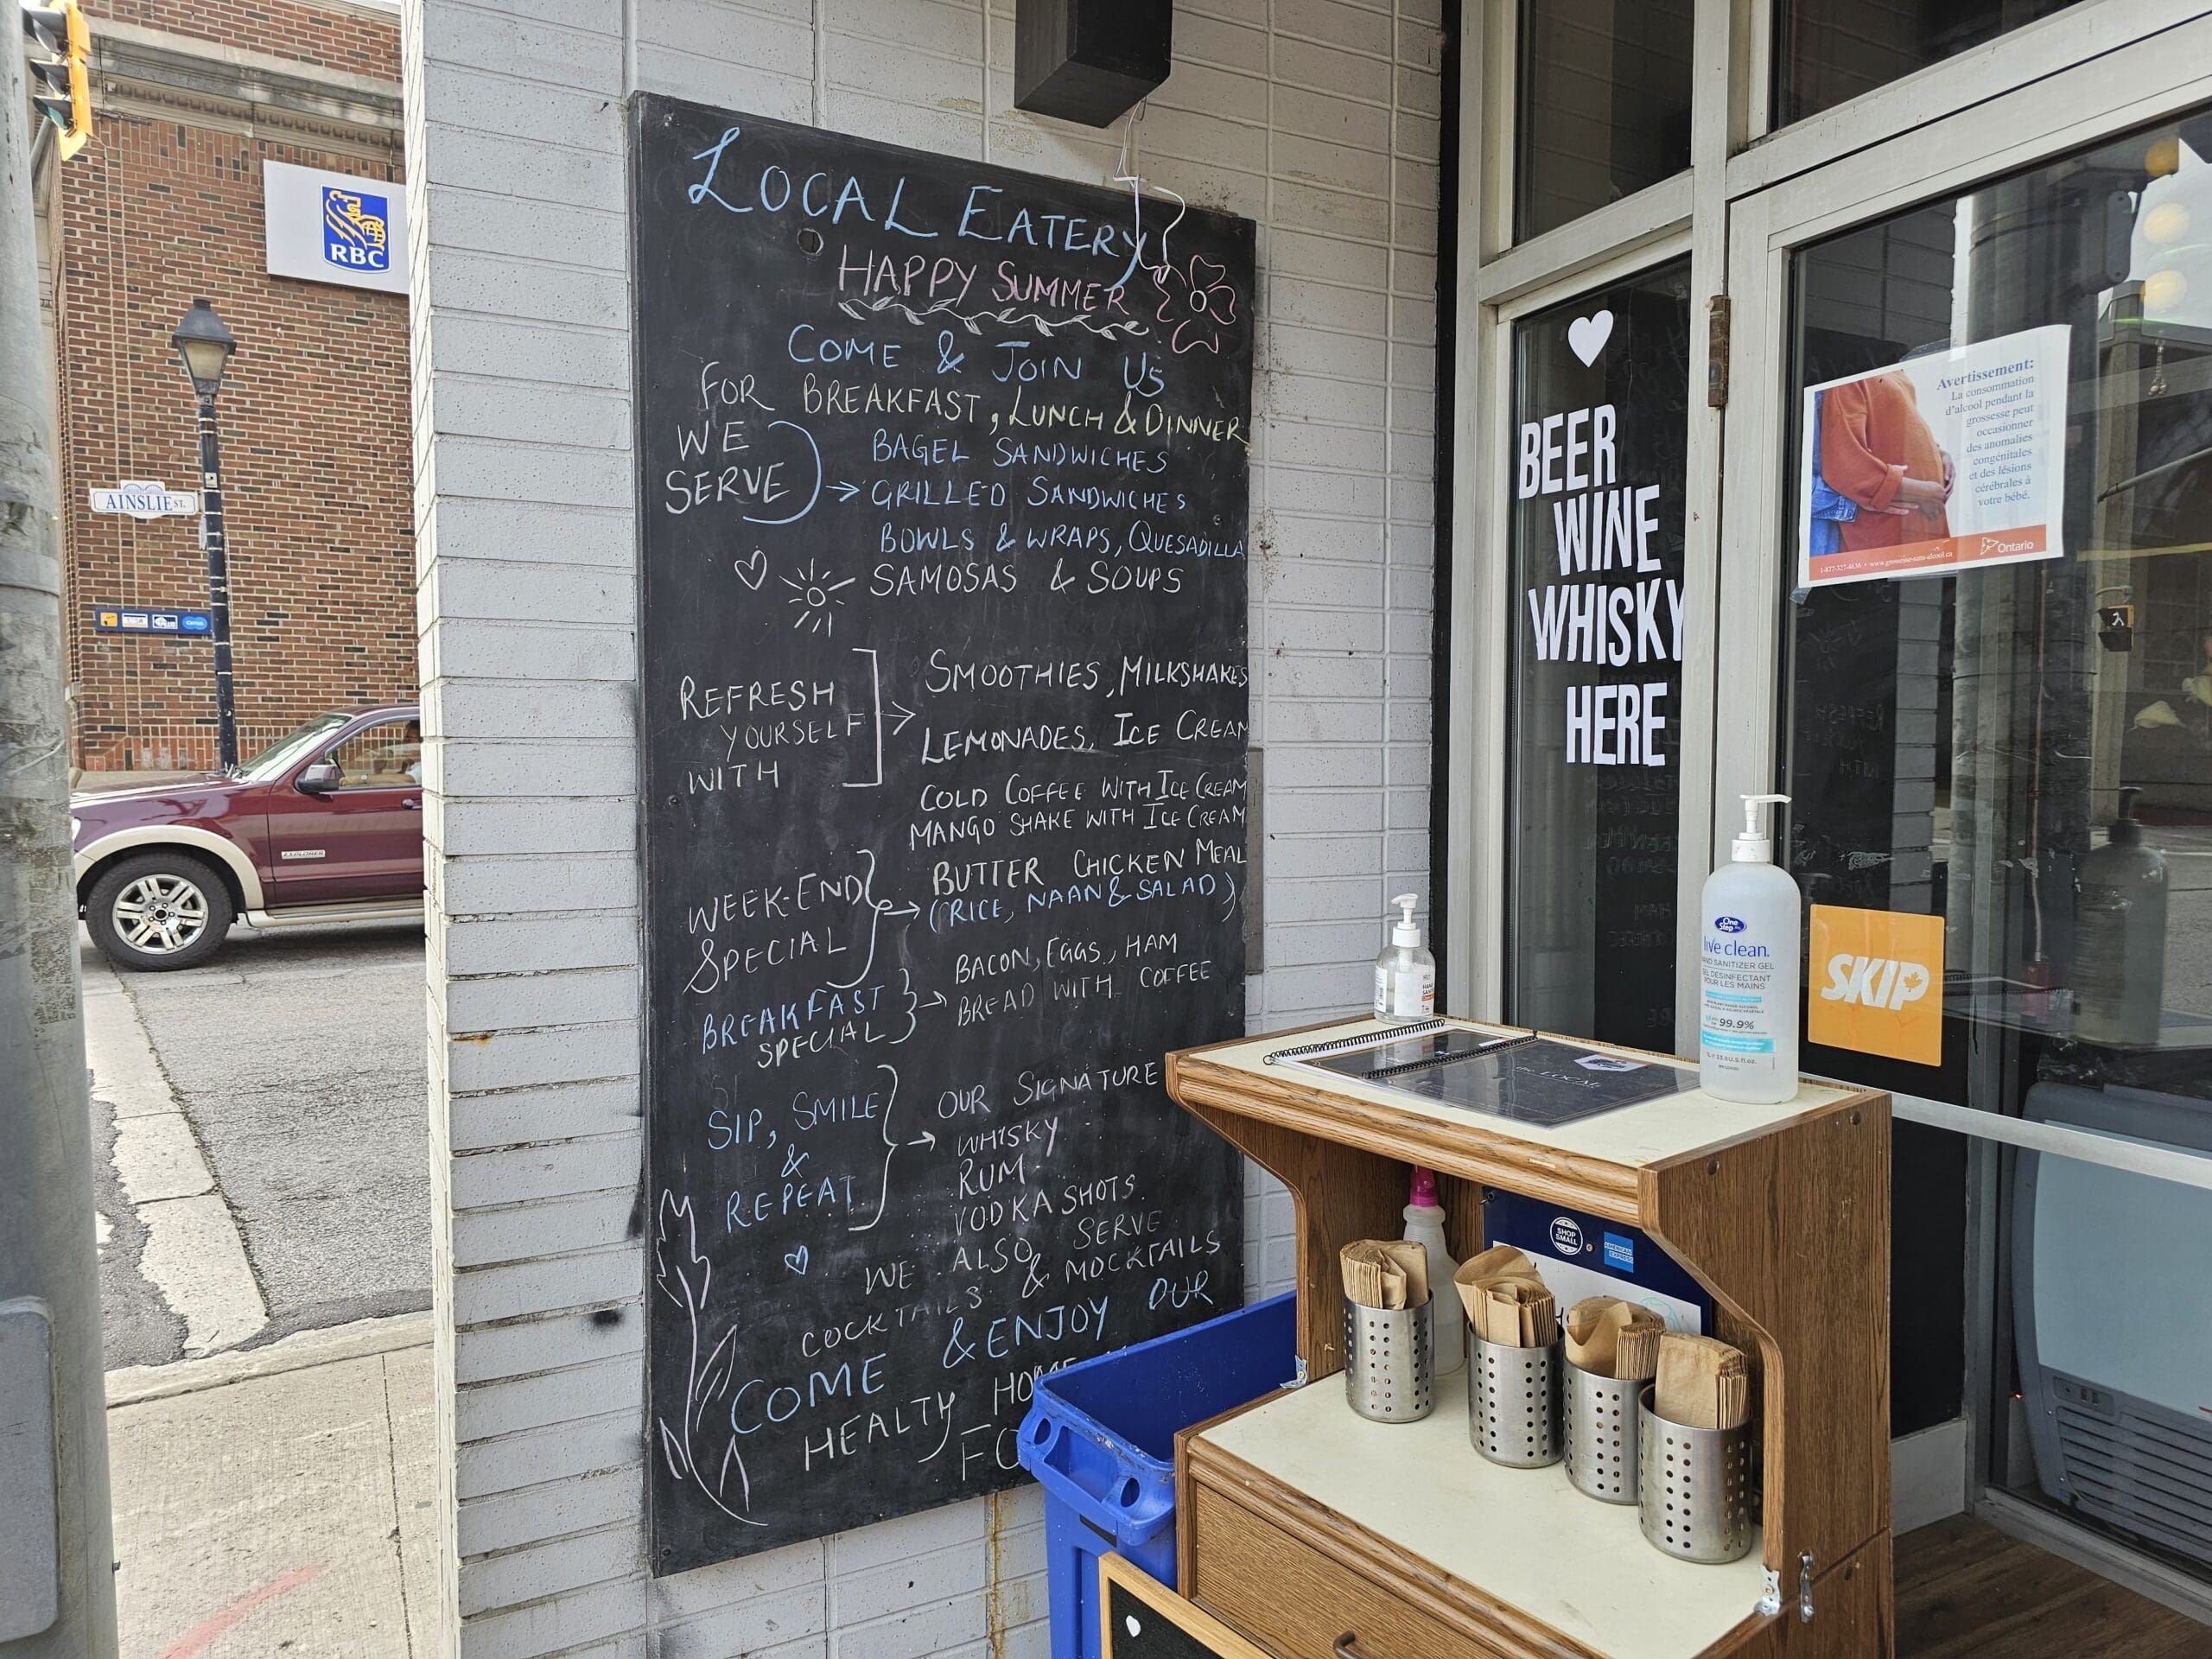 RBC
AINSLIE ST.
EXPLORER
LOCAL EATERY
HAPPY SUMMER
COME & JOIN US
FOR BREAKFAST, LUNCH & DINNER
WE
SERVE
BAGEL SANDWICHES
GRILLED SANDWICHES
BOWLS & WRAPS, QUESADILLA
SAMOSAS & SOUPS
REFRESH
YOURSELF
WITH
SMOOTHIES, MILKSHAKES
LEMONADES, ICE CREAM
COLD COFFEE WITH ICE CREAM
MANGO SHAKE WITH ICE CREAM
WEEK-END
SPECIAL
BUTTER CHICKEN MEAL
(RICE, NAAN & SALAD)
BREAKFAST
SPECIAL
BACON, EGGS, HAM
BREAD WITH COFFEE
SIP, SMILE
&
REPEAT
OUR SIGNATURE
WHISKY
RUM
VODKA SHOTS
WE ALSO SERVE
COCKTAILS & MOCKTAILS
COME & ENJOY OUR
HEALTY
BEER
WINE
WHISKY
HERE
Avertissement:
La consommation
d'alcool pendant la
grossesse peut
occasionner
des anomalies
congénitales
et des lésions
cérébrales à
votre bébé.
1-877-327-4636 • www.grossesse-sans-alcool.ca
Ontario
SKIP
One Step
live clean.
HAND SANITIZER GEL
GEL DÉSINFECTANT
POUR LES MAINS
99.9%
the LOCAL
SHOP
SMALL
AMERICAN
EXPRESS